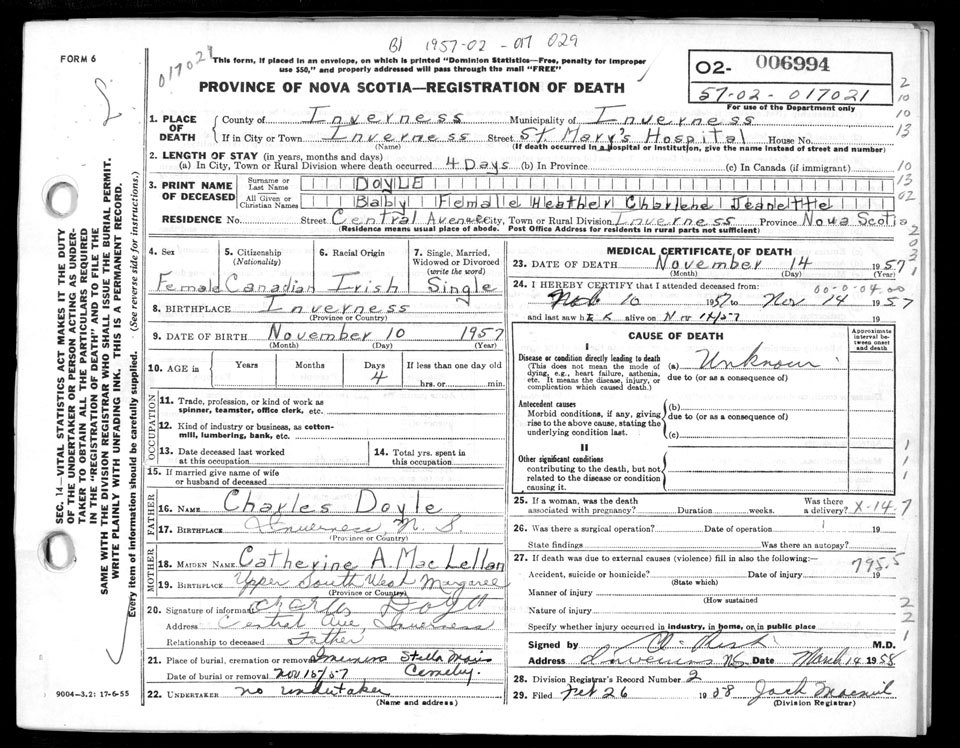 B1 1957-02-017 029
FORM 6
017021
This form, if placed in an envelope, on which is printed "Dominion Statistics—Free, penalty for improper
use $50," and properly addressed will pass through the mail "FREE"
PROVINCE OF NOVA SCOTIA—REGISTRATION OF DEATH
02- 006994
57-02-017021
For use of the Department only
1. PLACE OF DEATH
County of Inverness Municipality of Inverness
If in City or Town Inverness Street St Mary's Hospital House No.
(Name) (If death occurred in a Hospital or Institution, give the name instead of street and number)
2. LENGTH OF STAY (in years, months and days)
(a) In City, Town or Rural Division where death occurred 4 Days (b) In Province (c) In Canada (if immigrant)
3. PRINT NAME OF DECEASED
Surname or Last Name DOYLE
All Given or Christian Names Baby Female Heather Charlene Jeanette
RESIDENCE No. Street Central Avenue City, Town or Rural Division Inverness Province Nova Scotia
(Residence means usual place of abode. Post Office Address for residents in rural parts not sufficient)
4. Sex
Female
5. Citizenship (Nationality)
Canadian
6. Racial Origin
Irish
7. Single, Married, Widowed or Divorced (write the word)
Single
8. BIRTHPLACE Inverness
(Province or Country)
9. DATE OF BIRTH November 10 1957
(Month) (Day) (Year)
10. AGE in Years Months Days 4 If less than one day old hrs. or min.
OCCUPATION
11. Trade, profession, or kind of work as spinner, teamster, office clerk, etc.
12. Kind of industry or business, as cotton-mill, lumbering, bank, etc.
13. Date deceased last worked at this occupation
14. Total yrs. spent in this occupation
15. If married give name of wife or husband of deceased
FATHER
16. NAME Charles Doyle
17. BIRTHPLACE Inverness N. S
(Province or Country)
MOTHER
18. MAIDEN NAME Catherine A. MacLellan
19. BIRTHPLACE Upper South West Margaree
(Province or Country)
20. Signature of informant Charles Doyle
Address Central Ave Inverness
Relationship to deceased Father
21. Place of burial, cremation or removal Inverness Stella Maris Cemetery.
Date of burial or removal Nov 15/57
22. UNDERTAKER no undertaker
(Name and address)
MEDICAL CERTIFICATE OF DEATH
23. DATE OF DEATH November 14 1957
(Month) (Day) (Year)
24. I HEREBY CERTIFY that I attended deceased from: 00-0-04.00
Nov 10 1957 to Nov 14 1957
and last saw her alive on Nov 14/57 19
CAUSE OF DEATH
Approximate interval between onset and death
I
Disease or condition directly leading to death
(This does not mean the mode of dying, e.g., heart failure, asthenia, etc. It means the disease, injury, or complication which caused death.)
(a) Unknown
due to (or as a consequence of)
Antecedent causes
Morbid conditions, if any, giving rise to the above cause, stating the underlying condition last.
(b)
due to (or as a consequence of)
(c)
II
Other significant conditions
contributing to the death, but not related to the disease or condition causing it.
25. If a woman, was the death associated with pregnancy? Duration weeks. Was there a delivery? X-14.7
26. Was there a surgical operation? Date of operation 19
State findings Was there an autopsy?
27. If death was due to external causes (violence) fill in also the following:—
795.5
Accident, suicide or homicide? Date of injury 19
(State which)
Manner of injury
(How sustained
Nature of injury
Specify whether injury occurred in industry, in home, or in public place
Signed by M.D.
Address Inverness NS Date March 14 1958
28. Division Registrar's Record Number 2
29. Filed Feb 26 1958 Jack
(Division Registrar)
2
10
10
13
10
13
02
2
0
3
1
1
1
1
2
2
1
SEC. 14—VITAL STATISTICS ACT MAKES IT THE DUTY
OF THE UNDERTAKER OR PERSON ACTING AS UNDER-
TAKER TO OBTAIN ALL THE PARTICULARS REQUIRED
IN THE "REGISTRATION OF DEATH" AND TO FILE THE
SAME WITH THE DIVISION REGISTRAR WHO SHALL ISSUE THE BURIAL PERMIT.
WRITE PLAINLY WITH UNFADING INK. THIS IS A PERMANENT RECORD.
Every item of information should be carefully supplied. (See reverse side for instructions.)
9004-3.2: 17-6-55